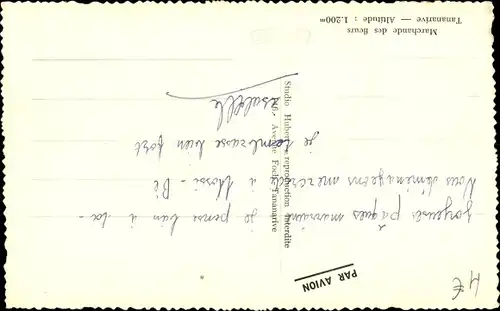 Tananarive — Altitude : 1.200m
Marchande des fleurs
Studio Hubert - reproduction interdite
Avenue Foch - Tananarive
PAR AVION
Joyeuses pâques marraine je pense bien à toi -
Nous déménageons mercredi à Nossi - Bé
je t'embrasse bien fort
4 €